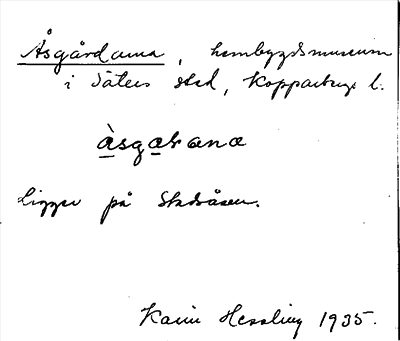 Åsgårdarna, hembygdsmuseum
i Säters stad, Kopparbergs l.
àsgaṙana
Ligger på Stadsåsen.
Karin Hessling 1935.